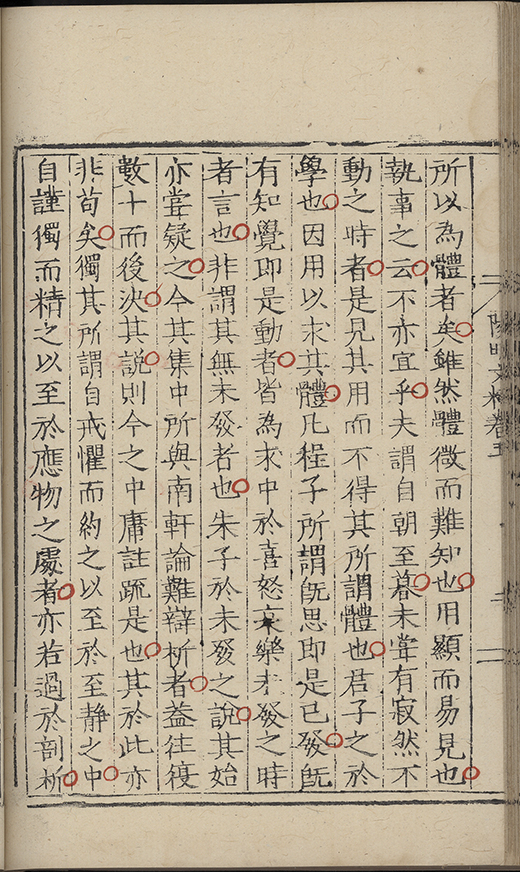 所以為體者矣雖然體微而難知也用顯而易見也
執事之云不亦宜乎夫謂自朝至暮未甞有寂然不
動之時者是見其用而不得其所謂體也君子之於
學也因用以求其體凡程子所謂旣思即是已發旣
有知覺即是動者皆為求中於喜怒哀樂未發之時
者言也非謂其無未發者也朱子於未發之說其始
亦甞疑之今其集中所與南軒論難辯析者盖往復
數十而後決其說則今之中庸註疏是也其於此亦
非苟矣獨其所謂自戒懼而約之以至於至靜之中
自謹獨而精之以至於應物之處者亦若過於剖析
陽明文粹卷五